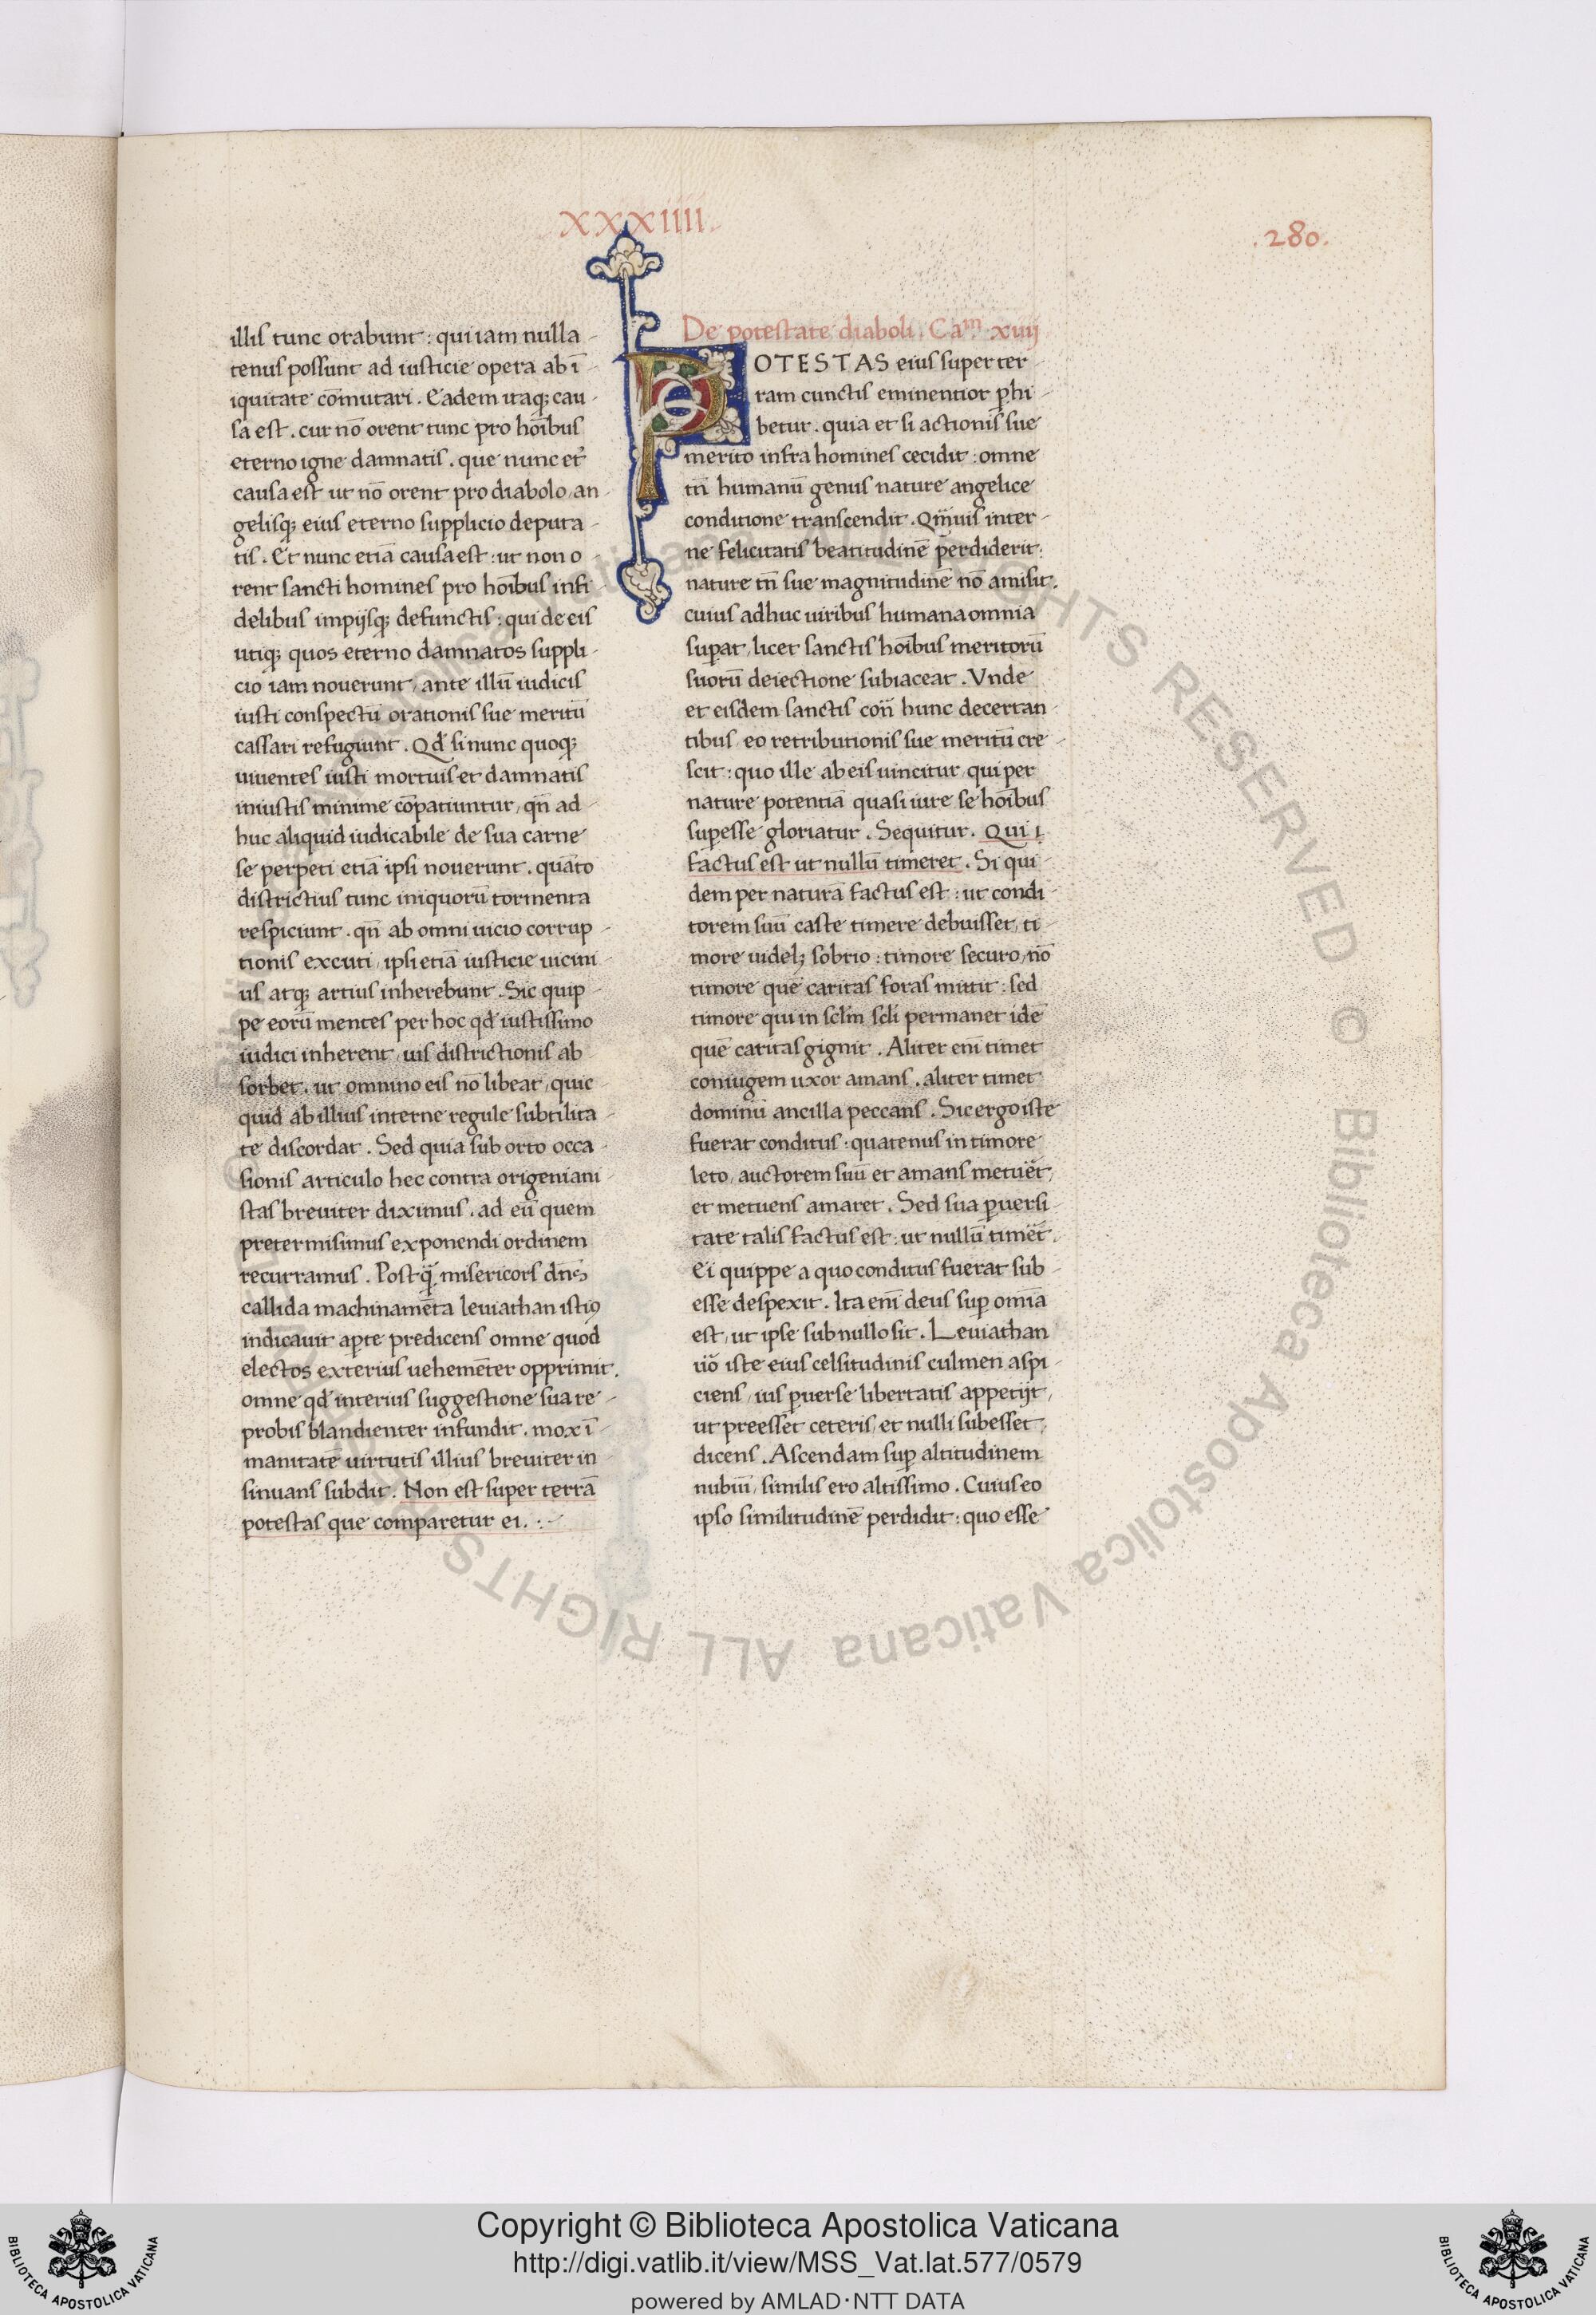 XXXIIII.
.280.
illis tunc orabunt: qui iam nulla-
tenus possunt ad iusticie opera ab ī-
iquitate cōmutari. Eadem itaq; cau-
sa est. cur nō orent tunc pro hoībus
eterno igne damnatis. que nunc et̄
causa est ut nō orent pro diabolo, an-
gelisq; eius eterno supplicio deputa-
tis. Et nunc etiā causa est: ut non o-
rent sancti homines pro hoībus infi-
delibus impijsq; defunctis: qui de eis
utiq; quos eterno damnatos suppli-
cio iam nouerunt, ante illū iudicis
iusti conspectū orationis sue meritū
cassari refugiunt. Qd̄ si nunc quoq;
uiuentes iusti mortuis et damnatis
iniustis minime cōpatiuntur, qn̄ ad-
huc aliquid iudicabile de sua carne
se perpeti etiā ipsi nouerunt. quāto
districtius tunc iniquorū tormenta
respiciunt. qn̄ ab omni uicio corrup-
tionis excuti, ipsi etiā iusticie uicini-
us atq; artius inherebunt. Sic quip-
pe eorū mentes per hoc qd̄ iustissimo
iudici inherent, uis districtionis ab-
sorbet. ut omnino eis nō libeat, quic-
quid ab illius interne regule subtilita-
te discordat. Sed quia sub orto occa-
sionis articulo hec contra origeniani-
stas breuiter diximus. ad eū quem
pretermisimus exponendi ordinem
recurramus. Postq̄ misericors dn̄s
callida machinamēta leuiathan istiꝯ
indicauit aꝑte predicens omne quod
electos exterius uehemēter opprimit.
omne qd̄ interius suggestione sua re-
probis blandienter infundit. mox ī-
manitatē uirtutis illius breuiter in-
sinuans subdit. Non est super terrā
potestas que comparetur ei. :-
De potestate diaboli. Caᵐ. xiiij
POTESTAS eius super ter-
ram cunctis eminentior ꝓhi-
betur. quia et si actionis sue
merito infra homines cecidit: omne
tn̄ humanū genus nature angelice
conditione transcendit. Qm̄uis inter-
ne felicitatis beatitudinē perdiderit:
nature tn̄ sue magnitudinē nō amisit.
cuius adhuc uiribus humana omnia
suꝑat, licet sanctis hoībus meritorū
suorū deiectione subiaceat. Vnde
et eisdem sanctis con̄ hunc decertan-
tibus, eo retributionis sue meritū cre-
scit: quo ille ab eis uincitur, qui per
nature potentiā quasi iure se hoībus
suꝑesse gloriatur. Sequitur. Qui
factus est ut nullū timeret. Si qui-
dem per naturā factus est: ut condi-
torem suū caste timere debuisset, ti-
more uidelꝫ sobrio: timore securo, nō
timore quē caritas foras mittit: sed
timore qui in sclm̄ scli permanet idē
quē caritas gignit. Aliter eni timet
coniugem uxor amans. aliter timet
dominū ancilla peccans. Sic ergo iste
fuerat conditus: quatenus in timore
leto, auctorem suū et amans metuet̄,
et metuens amaret. Sed sua ꝑuersi-
tate talis factus est: ut nullū timet̄.
Ei quippe a quo conditus fuerat sub-
esse despexit. Ita eni deus suꝑ omīa
est, ut ipse sub nullo sit. Leuiathan
uō iste eius celsitudinis culmen aspi-
ciens, ius ꝑuerse libertatis appetijt,
ut preesset ceteris, et nulli subesset,
dicens. Ascendam suꝑ altitudinem
nubiū, similis ero altissimo. Cuius eo
ipso similitudinē perdidit: quo esse
ALL RIGHTS RESERVED © Biblioteca Apostolica Vaticana
Copyright © Biblioteca Apostolica Vaticana
http://digi.vatlib.it/view/MSS_Vat.lat.577/0579
powered by AMLAD·NTT DATA
BIBLIOTECA APOSTOLICA VATICANA
BIBLIOTECA APOSTOLICA VATICANA